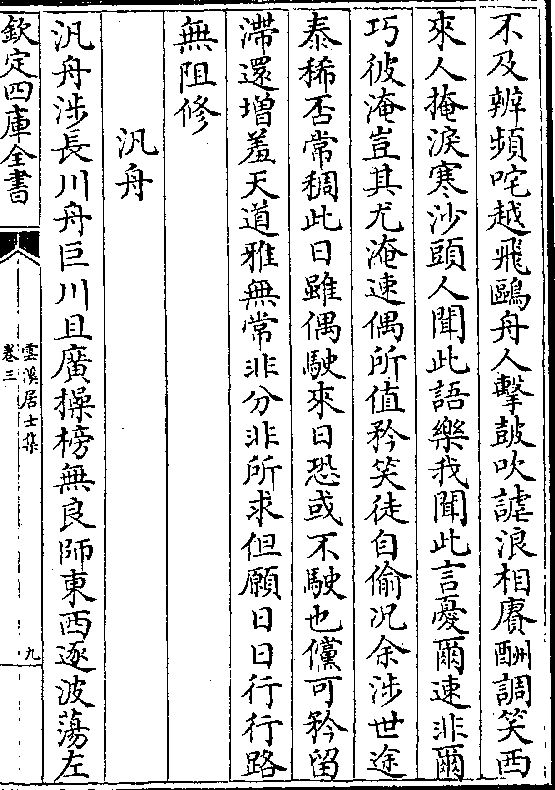 不及辨頻咤越飛鷗舟人擊鼓吹謔浪相賡酬調笑西
來人掩淚寒沙頭人聞此語樂我聞此言憂爾速非爾
巧彼淹豈其尤淹速偶所值矜笑徒自偷况余涉世途
泰稀否常稠此日雖偶駛來日恐或不駛也儻可矜留
滯還增羞天道雅無常非分非所求但願日日行行路
無阻修
汎舟
汎舟涉長川舟巨川且廣操榜無良師東西逐波蕩左
欽定四庫全書
雲溪居士集
卷三
九